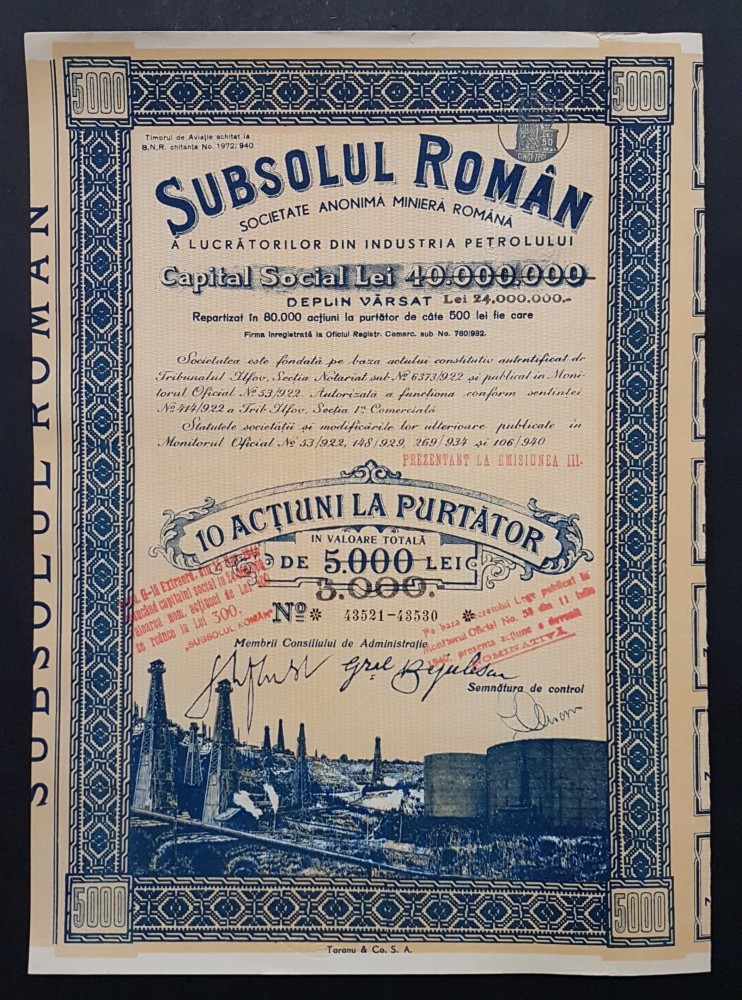 5000
5000
Timbrul de Aviație achitat la
B.N.R. chitanța No. 1972/940
LEI
50
CINCI ZECI
SUBSOLUL ROMÂN
SOCIETATE ANONIMĂ MINIERĂ ROMÂNĂ
A LUCRĂTORILOR DIN INDUSTRIA PETROLULUI
Capital Social Lei 40.000.000
DEPLIN VĂRSAT Lei 24.000.000,-
Repartizat în 80.000 acțiuni la purtător de câte 500 lei fie care
Firma înregistrată la Oficiul Registr. Comerc. sub No. 760/932.
Societatea este fondată pe baza actului constitutiv autentificat de
Tribunalul Ilfov, Secția Notariat sub № 6373/922 și publicat în Moni-
torul Oficial № 53/922. Autorizată a funcționa conform sentinței
№ 414/922 a Trib. Ilfov, Secția 1ª Comercială
Statutele societății și modificările lor ulterioare publicate în
Monitorul Oficial № 53/922, 148/929, 269/934 și 106/940
PREZENTANT LA EMISIUNEA III-
10 ACȚIUNI LA PURTĂTOR
IN VALOARE TOTALĂ
DE 5.000 LEI
3.000.
G-lă Extraord.
capitalul social la
nom. acțiunei de Lei
se reduce la Lei 300.
„SUBSOLUL ROMÂN”
№ * 43521-43530 *
Pe baza Decretului Lege publicat în
Monitorul Oficial No. 58 din 11 Iulie
1940, prezenta acțiune a devenit
NOMINATIVĂ
Membrii Consiliului de Administrație
Semnătura de control
5000
5000
Taranu & Co. S. A.
SUBSOLUL ROMAN